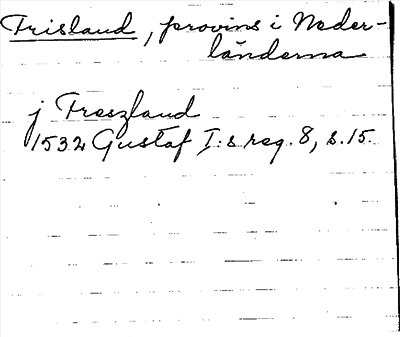 Frisland, provins i Neder-
länderna
j Freszland
1532 Gustaf I:s reg. 8, s. 15.